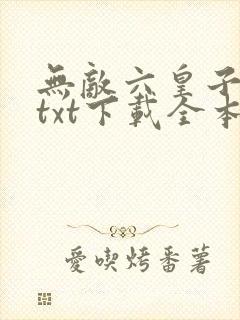 無敵六皇子
txt下載全本
愛喫烤番薯